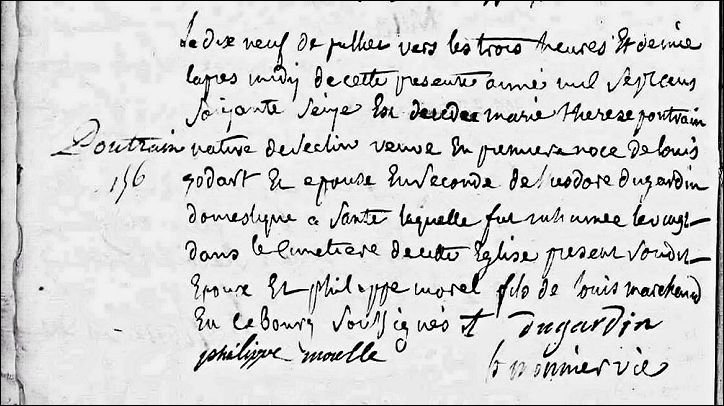 Le dix neuf de juillet vers les trois heures Et demie
lapres midy de cette presente année mil sept cens
soixante seize Est decedee marie therese poutrain
Poutrain
156
native de seclin veuve En premiere noce de louis
godart Et epouse En seconde de theodore dugardin
domestique a sante laquelle fut inhumée le vingt
dans le Cimetiere de cette Eglise present soudit
Epoux Et philippe morel fils de louis marchand
En ce bourg soussignés
dugardin
philippe morelle